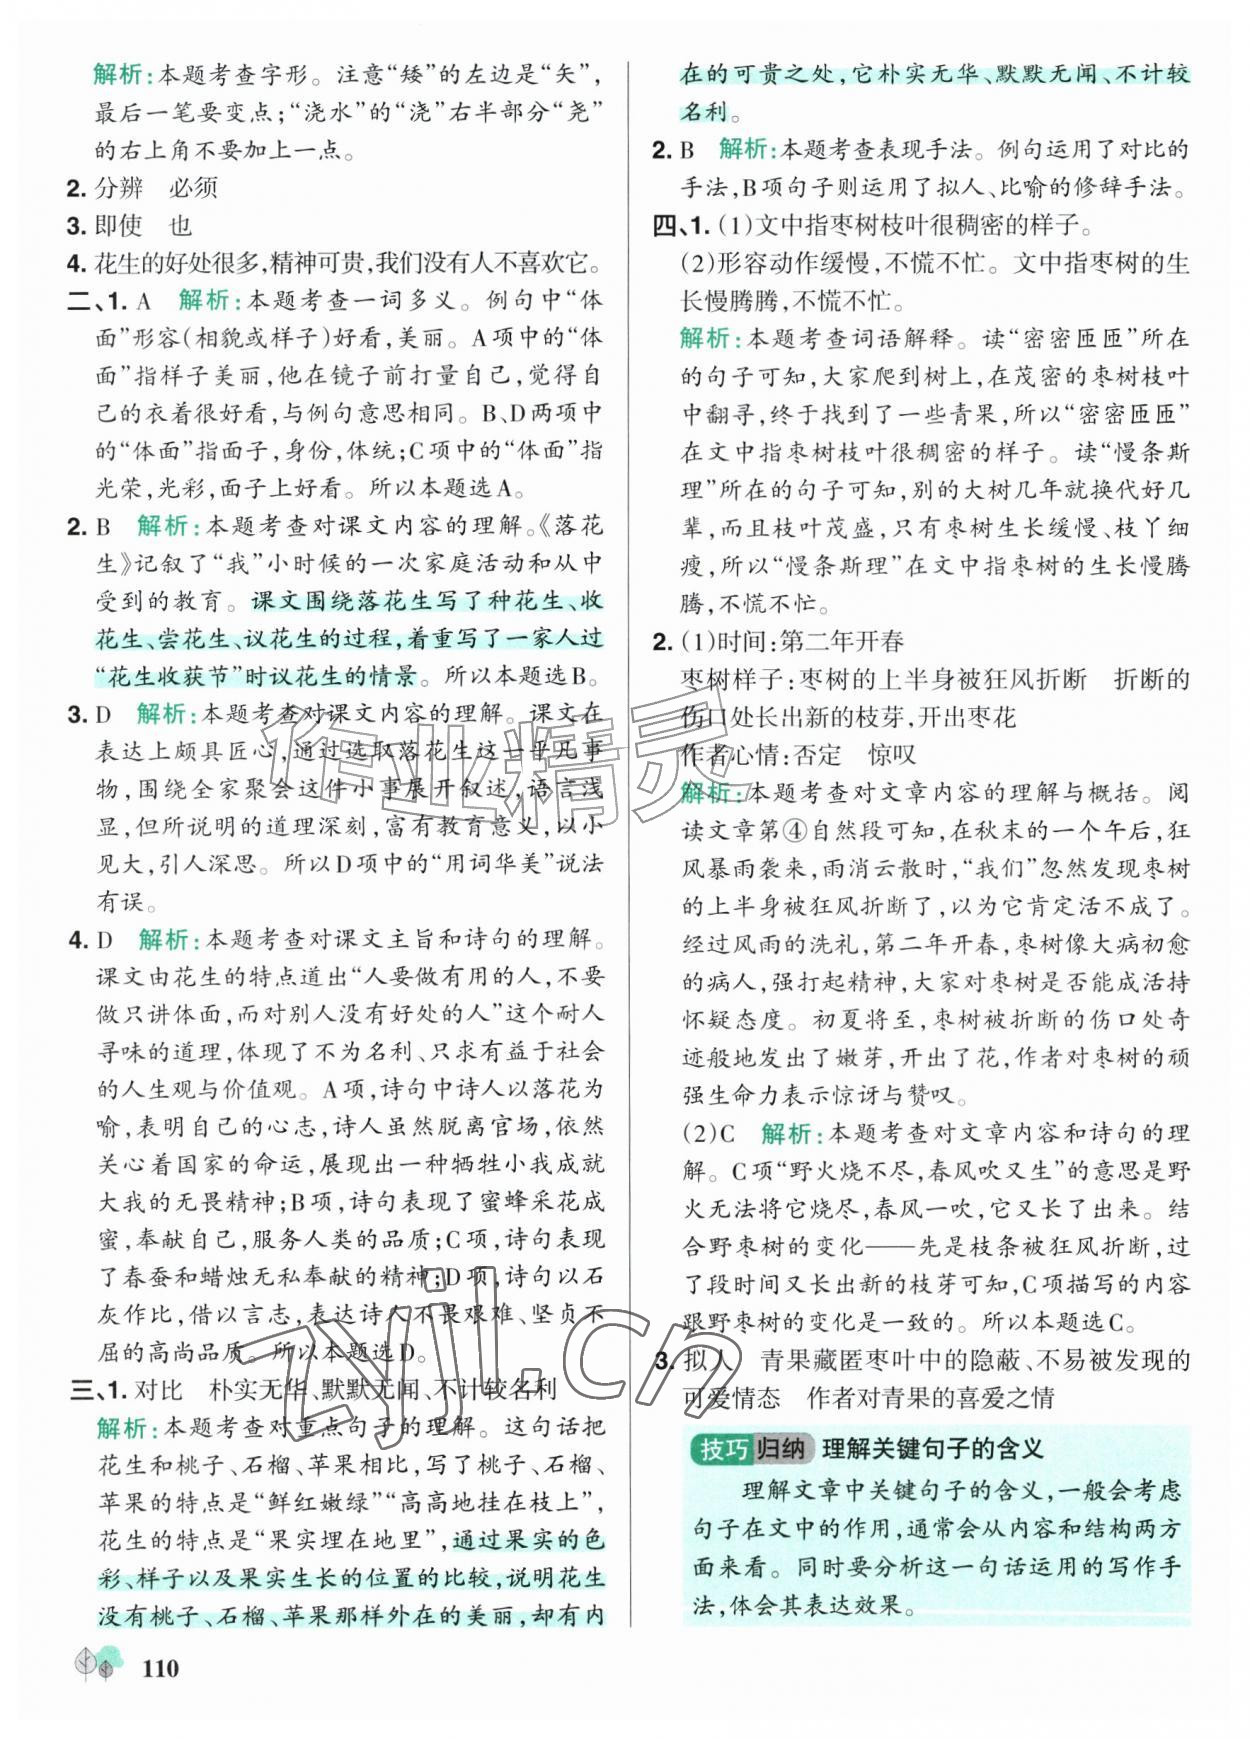 解析:本题考查字形。注意“矮”的左边是“矢”,
最后一笔要变点;“浇水”的“浇”右半部分“尧”
的右上角不要加上一点。
2. 分辨　必须
3. 即使　也
4. 花生的好处很多,精神可贵,我们没有人不喜欢它。
二、1. A　解析:本题考查一词多义。例句中“体
面”形容(相貌或样子)好看,美丽。A项中的“体
面”指样子美丽,他在镜子前打量自己,觉得自己
的衣着很好看,与例句意思相同。B、D两项中
的“体面”指面子,身份,体统;C项中的“体面”指
光荣,光彩,面子上好看。所以本题选A。
2. B　解析:本题考查对课文内容的理解。《落花
生》记叙了“我”小时候的一次家庭活动和从中
受到的教育。课文围绕落花生写了种花生、收
花生、尝花生、议花生的过程,着重写了一家人过
“花生收获节”时议花生的情景。所以本题选B。
3. D　解析:本题考查对课文内容的理解。课文在
表达上颇具匠心,通过选取落花生这一平凡事
物,围绕全家聚会这件小事展开叙述,语言浅
显,但所说明的道理深刻,富有教育意义,以小
见大,引人深思。所以D项中的“用词华美”说法
有误。
4. D　解析:本题考查对课文主旨和诗句的理解。
课文由花生的特点道出“人要做有用的人,不要
做只讲体面,而对别人没有好处的人”这个耐人
寻味的道理,体现了不为名利、只求有益于社会
的人生观与价值观。A项,诗句中诗人以落花为
喻,表明自己的心志,诗人虽然脱离官场,依然
关心着国家的命运,展现出一种牺牲小我成就
大我的无畏精神;B项,诗句表现了蜜蜂采花成
蜜,奉献自己,服务人类的品质;C项,诗句表现
了春蚕和蜡烛无私奉献的精神;D项,诗句以石
灰作比,借以言志,表达诗人不畏艰难、坚贞不
屈的高尚品质。所以本题选D。
三、1. 对比　朴实无华、默默无闻、不计较名利
解析:本题考查对重点句子的理解。这句话把
花生和桃子、石榴、苹果相比,写了桃子、石榴、
苹果的特点是“鲜红嫩绿”“高高地挂在枝上”,
花生的特点是“果实埋在地里”,通过果实的色
彩、样子以及果实生长的位置的比较,说明花生
没有桃子、石榴、苹果那样外在的美丽,却有内
110
在的可贵之处,它朴实无华、默默无闻、不计较
名利。
2. B　解析:本题考查表现手法。例句运用了对比的
手法,B项句子则运用了拟人、比喻的修辞手法。
四、1. (1)文中指枣树枝叶很稠密的样子。
(2)形容动作缓慢,不慌不忙。文中指枣树的生
长慢腾腾,不慌不忙。
解析:本题考查词语解释。读“密密匝匝”所在
的句子可知,大家爬到树上,在茂密的枣树枝叶
中翻寻,终于找到了一些青果,所以“密密匝匝”
在文中指枣树枝叶很稠密的样子。读“慢条斯
理”所在的句子可知,别的大树几年就换代好几
辈,而且枝叶茂盛,只有枣树生长缓慢、枝丫细
瘦,所以“慢条斯理”在文中指枣树的生长慢腾
腾,不慌不忙。
2. (1)时间:第二年开春
枣树样子:枣树的上半身被狂风折断　折断的
伤口处长出新的枝芽,开出枣花
作者心情:否定　惊叹
解析:本题考查对文章内容的理解与概括。阅
读文章第④自然段可知,在秋末的一个午后,狂
风暴雨袭来,雨消云散时,“我们”忽然发现枣树
的上半身被狂风折断了,以为它肯定活不成了。
经过风雨的洗礼,第二年开春,枣树像大病初愈
的病人,强打起精神,大家对枣树是否能成活持
怀疑态度。初夏将至,枣树被折断的伤口处奇
迹般地发出了嫩芽,开出了花,作者对枣树的顽
强生命力表示惊讶与赞叹。
(2)C　解析:本题考查对文章内容和诗句的理
解。C项“野火烧不尽,春风吹又生”的意思是野
火无法将它烧尽,春风一吹,它又长了出来。结
合野枣树的变化——先是枝条被狂风折断,过
了段时间又长出新的枝芽可知,C项描写的内容
跟野枣树的变化是一致的。所以本题选C。
3. 拟人　青果藏匿枣叶中的隐蔽、不易被发现的
可爱情态　作者对青果的喜爱之情
技巧归纳 理解关键句子的含义
理解文章中关键句子的含义,一般会考虑
句子在文中的作用,通常会从内容和结构两方
面来看。同时要分析这一句话运用的写作手
法,体会其表达效果。
作业精灵
zyjl.cn